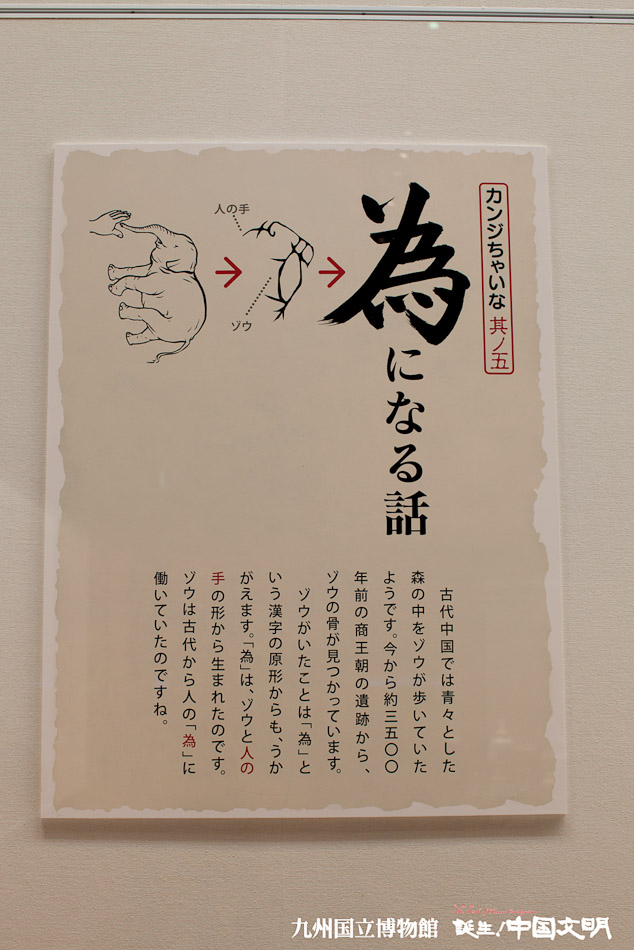 カンジちゃいな 其ノ五
為になる話
人の手
ゾウ
古代中国では青々とした
森の中をゾウが歩いていた
ようです。今から約三五〇〇
年前の商王朝の遺跡から、
ゾウの骨が見つかっています。
ゾウがいたことは「為」と
いう漢字の原形からも、うか
がえます。「為」は、ゾウと人の
手の形から生まれたのです。
ゾウは古代から人の「為」に
働いていたのですね。
九州国立博物館
誕生!中国文明